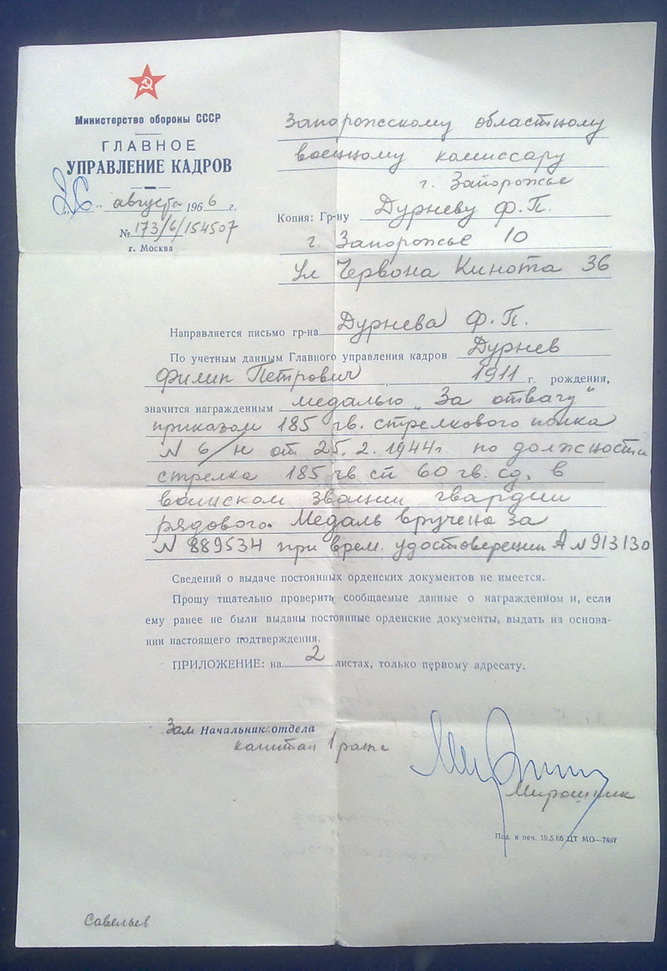 Министерство обороны СССР
ГЛАВНОЕ
УПРАВЛЕНИЕ КАДРОВ
„26" августа 1966 г.
№ 173/6/154507
г. Москва
Запорожскому областному
военному комиссару
г. Запорожье
Копия: Гр-ну Дурневу Ф. П.
г. Запорожье 10
Ул Червона Кинота 36
Направляется письмо гр-на Дурнева Ф. П.
По учетным данным Главного управления кадров Дурнев
Филип Петрович, 1911 г. рождения,
значится награжденным медалью „За отвагу"
приказом 185 гв. стрелкового полка
N 6/н от 25. 2. 1944г. по должности
стрелка 185 гв сп 60 гв. сд, в
воинском звании гвардии
рядового. Медаль вручена за
N 889534 при врем. удостоверении А N 913130
Сведений о выдаче постоянных орденских документов не имеется.
Прошу тщательно проверить сообщаемые данные о награжденном и, если
ему ранее не были выданы постоянные орденские документы, выдать на основа-
нии настоящего подтверждения.
ПРИЛОЖЕНИЕ: на 2 листах, только первому адресату.
Зам Начальник отдела
капитан 1 ранга
Мирошник
Под. к печ. 19.5.66 ЦТ МО—7497
Савельев